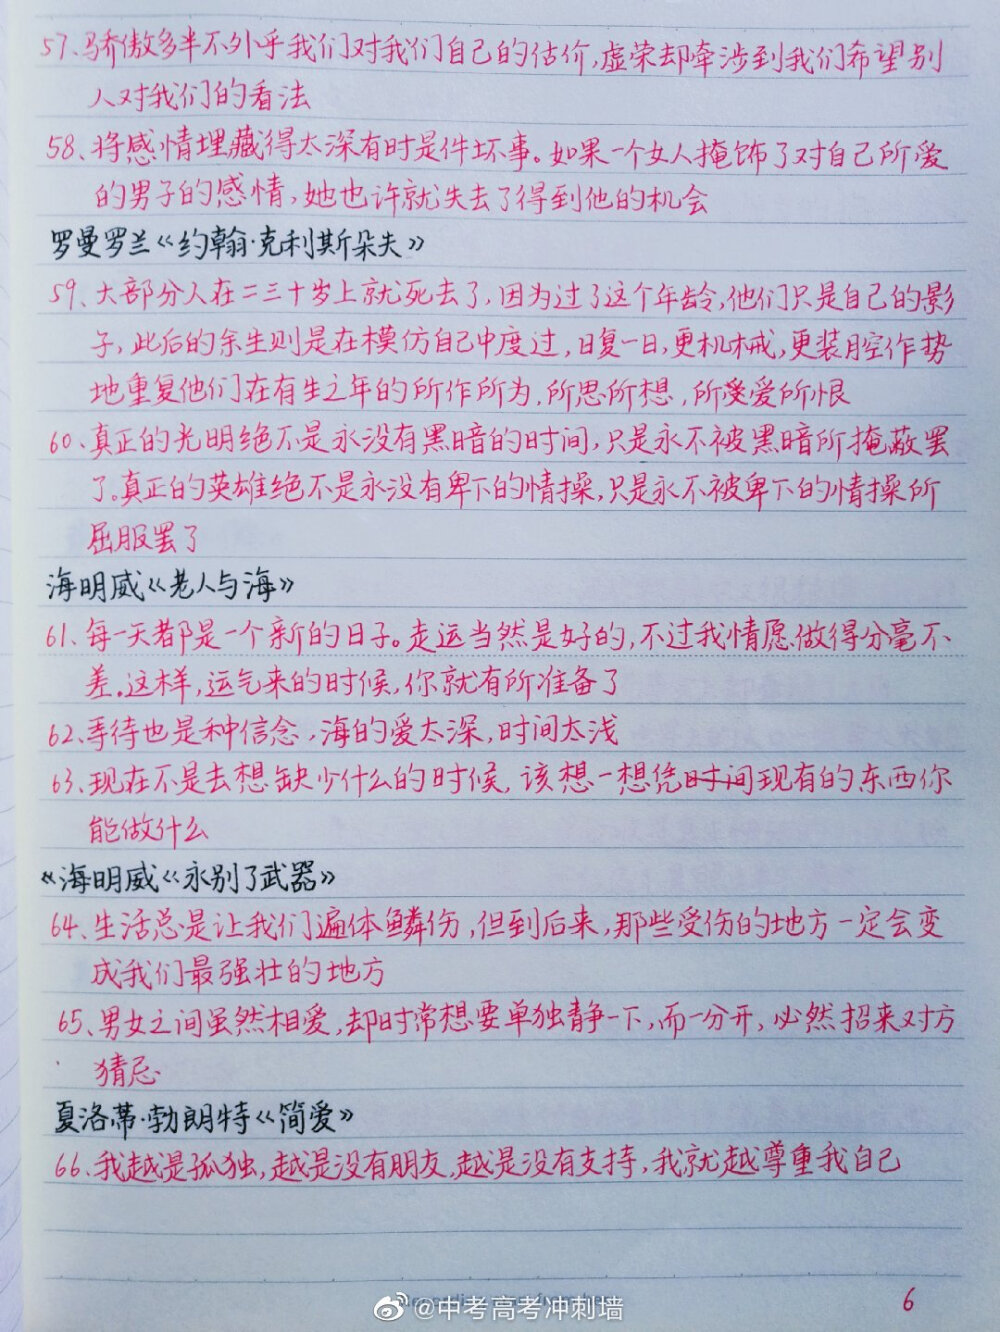 57、骄傲多半不外乎我们对我们自己的估价,虚荣却牵涉到我们希望别
人对我们的看法
58、将感情埋藏得太深有时是件坏事。如果一个女人掩饰了对自己所爱
的男子的感情,她也许就失去了得到他的机会
罗曼罗兰《约翰·克利斯朵夫》
59、大部分人在二三十岁上就死去了,因为过了这个年龄,他们只是自己的影
子,此后的余生则是在模仿自己中度过,日复一日,更机械,更装腔作势
地重复他们在有生之年的所作所为,所思所想,所爱所恨
60、真正的光明绝不是永没有黑暗的时间,只是永不被黑暗所掩蔽罢
了。真正的英雄绝不是永没有卑下的情操,只是永不被卑下的情操所
屈服罢了
海明威《老人与海》
61、每一天都是一个新的日子。走运当然是好的,不过我情愿做得分毫不
差。这样,运气来的时候,你就有所准备了
62、等待也是种信念,海的爱太深,时间太浅
63、现在不是去想缺少什么的时候,该想一想凭时间现有的东西你
能做什么
《海明威《永别了武器》
64、生活总是让我们遍体鳞伤,但到后来,那些受伤的地方一定会变
成我们最强壮的地方
65、男女之间虽然相爱,却时常想要单独静一下,而一分开,必然招来对方
猜忌
夏洛蒂·勃朗特《简爱》
66、我越是孤独,越是没有朋友,越是没有支持,我就越尊重我自己
@中考高考冲刺墙
6